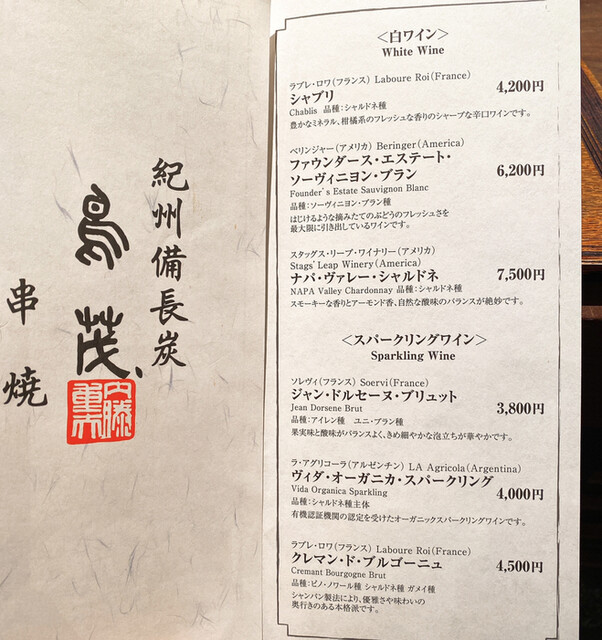 紀州備長炭
鳥茂
串焼
内藤
<白ワイン>
White Wine
ラブレ・ロワ(フランス) Laboure Roi(France)
シャブリ 4,200円
Chablis 品種:シャルドネ種
豊かなミネラル、柑橘系のフレッシュな香りのシャープな辛口ワインです。
ベリンジャー(アメリカ) Beringer(America)
ファウンダース・エステート・
ソーヴィニヨン・ブラン 6,200円
Founder's Estate Sauvignon Blanc
品種:ソーヴィニヨン・ブラン種
はじけるような摘みたてのぶどうのフレッシュさを
最大限に引き出しているワインです。
スタッグス・リープ・ワイナリー(アメリカ)
Stags' Leap Winery(America)
ナパ・ヴァレー・シャルドネ 7,500円
NAPA Valley Chardonnay 品種:シャルドネ種
スモーキーな香りとアーモンド香、自然な酸味のバランスが絶妙です。
<スパークリングワイン>
Sparkling Wine
ソレヴィ(フランス) Soervi(France)
ジャン・ドルセーヌ・ブリュット 3,800円
Jean Dorsene Brut
品種:アイレン種 ユニ・ブラン種
果実味と酸味がバランスよく、きめ細やかな泡立ちが華やかです。
ラ・アグリコーラ(アルゼンチン) LA Agricola(Argentina)
ヴィダ・オーガニカ・スパークリング 4,000円
Vida Organica Sparkling
品種:シャルドネ種主体
有機認証機関の認定を受けたオーガニックスパークリングワインです。
ラブレ・ロワ(フランス) Laboure Roi(France)
クレマン・ド・ブルゴーニュ 4,500円
Cremant Bourgogne Brut
品種:ピノ・ノワール種 シャルドネ種 ガメイ種
シャンパン製法により、優雅さや味わいの
奥行きのある本格派です。